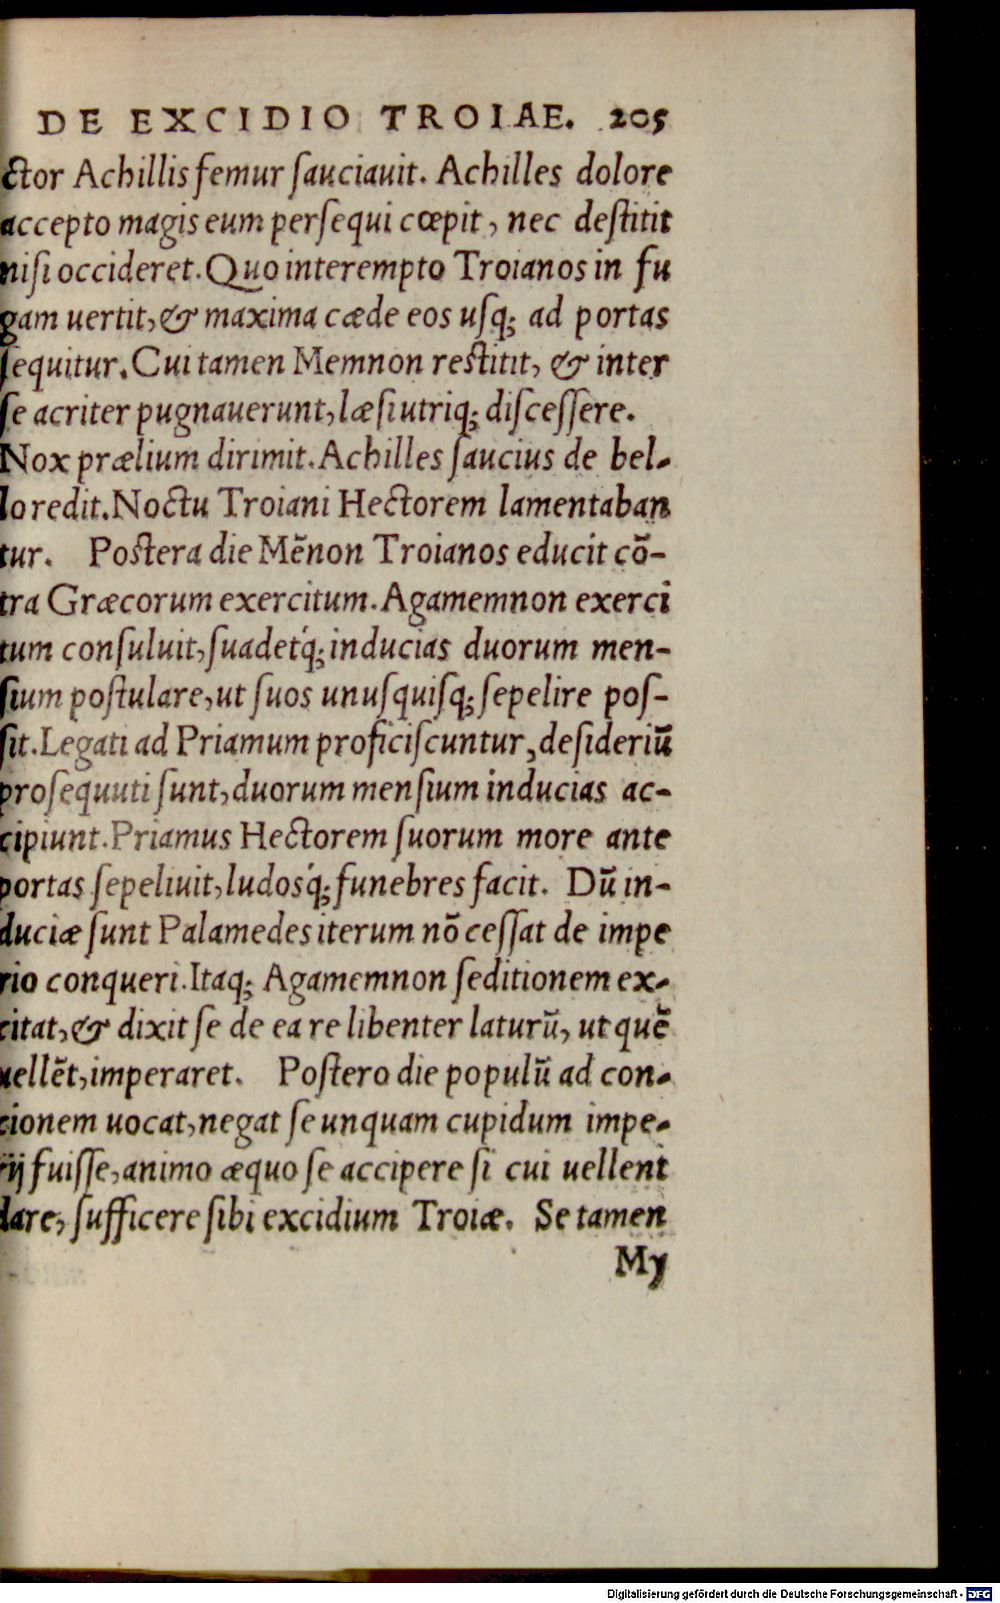 DE EXCIDIO TROIAE. 205
ctor Achillis femur ſauciauit. Achilles dolore
accepto magis eum perſequi cœpit, nec deſtitit
niſi occideret. Quo interempto Troianos in fu
gam uertit, & maxima cæde eos uſq; ad portas
ſequitur. Cui tamen Memnon reſtitit, & inter
ſe acriter pugnauerunt, læſi utriq; diſceſſere.
Nox prælium dirimit. Achilles ſaucius de bel-
lo redit. Noctu Troiani Hectorem lamentaban
tur. Poſtera die Mẽnon Troianos educit cõ-
tra Græcorum exercitum. Agamemnon exerci
tum conſuluit, ſuadetq́; inducias duorum men-
ſium poſtulare, ut ſuos unuſquiſq; ſepelire poſ-
ſit. Legati ad Priamum proficiſcuntur, deſideriũ
proſequuti ſunt, duorum menſium inducias ac-
cipiunt. Priamus Hectorem ſuorum more ante
portas ſepeliuit, ludosq́; funebres facit. Dũ in-
duciæ ſunt Palamedes iterum nõ ceſſat de impe
rio conqueri. Itaq; Agamemnon ſeditionem ex-
citat, & dixit ſe de ea re libenter laturũ, ut quẽ
uellẽt, imperaret. Poſtero die populũ ad con-
cionem uocat, negat ſe unquam cupidum impe-
rij fuiſſe, animo æquo ſe accipere ſi cui uellent
dare, ſufficere ſibi excidium Troiæ. Se tamen
My
Digitalisierung gefördert durch die Deutsche Forschungsgemeinschaft - DFG